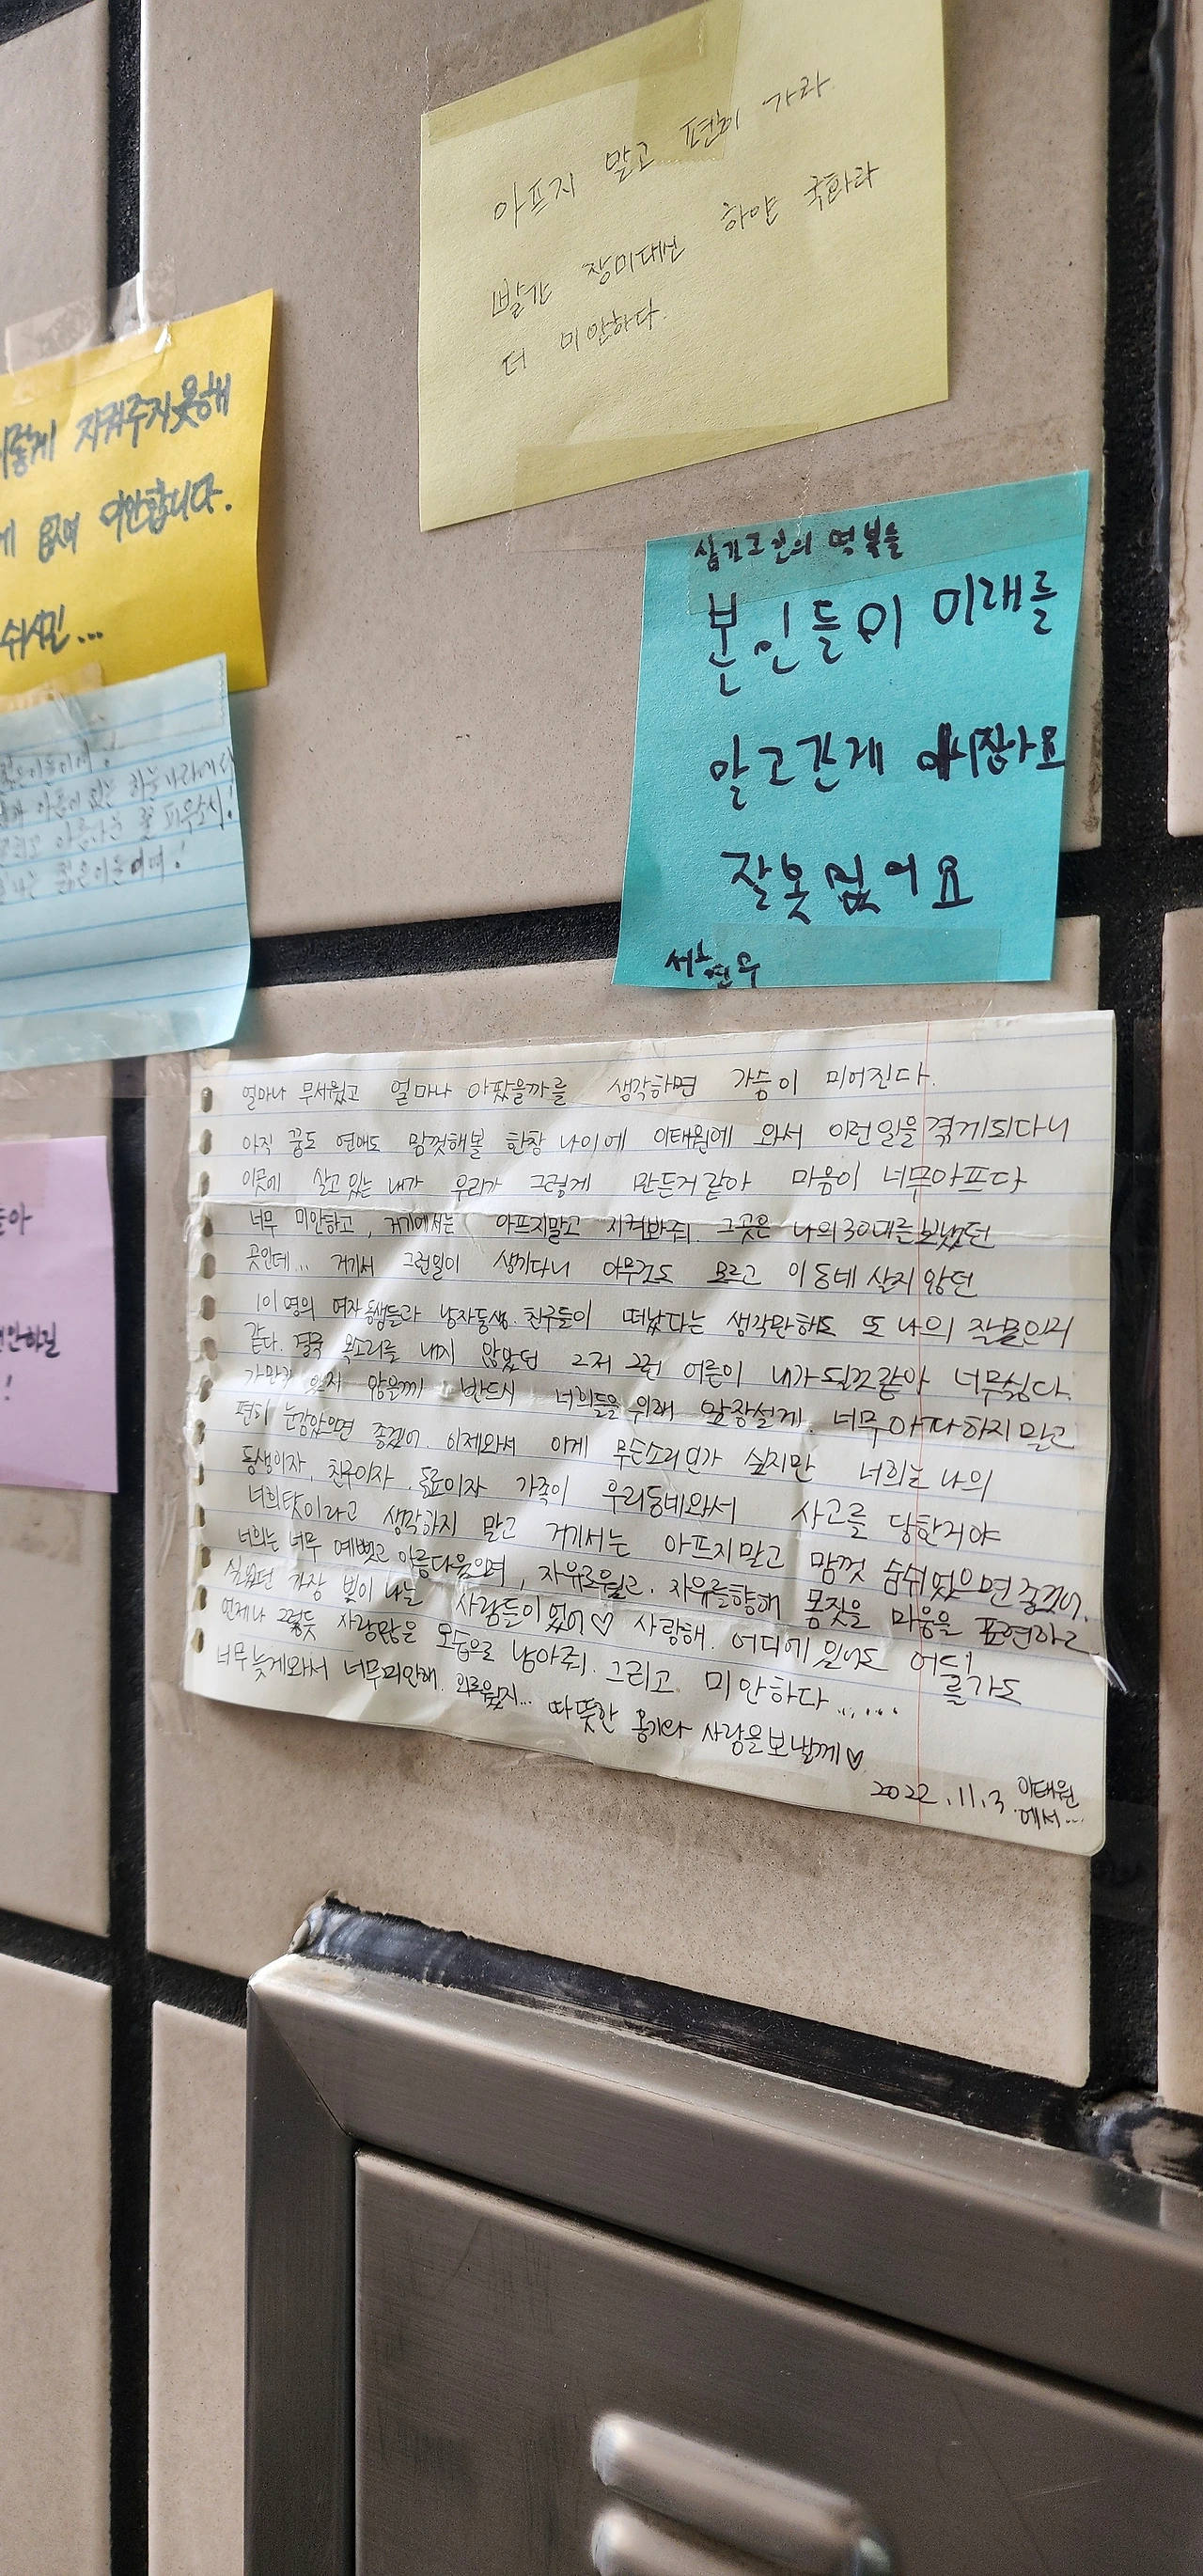 아프지 말고 편히 가라
빨간 장미대신 하얀 국화라
더 미안하다.
이렇게 지켜주지못해
미안합니다.
쉬시길...
아픔이 없는 하늘나라에서
아름다운 꽃 피우소서!
젊은이들이여!
삼가고인의 명복을
본인들이 미래를
알고간게 아니잖아요
잘못없어요
얼마나 무서웠고 얼마나 아팠을까를 생각하면 가슴이 미어진다.
아직 꿈도 연애도 맘껏해볼 한창 나이에 이태원에 와서 이런일을 겪게되다니
이곳에 살고있는 내가 우리가 그렇게 만든거같아 마음이 너무아프다
너무 미안하고, 거기에서는 아프지말고 지켜봐줘. 그곳은 나의30대를보냈던
곳인데... 거기서 그런일이 생기다니 아무것도 모르고 이동네 살지 않던
101명의 여자동생들과 남자동생. 친구들이 떠났다는 생각만해도 또 나의 잘못인거
같다. 결국 목소리를 내지 않았던 그저 그런 어른이 내가된것같아 너무싫다.
가만히 있지 않을께 반드시 너희들을 위해 앞장설게. 너무 아파하지말고
편히 눈감았으면 좋겠어. 이제와서 이게 무슨소리인가 싶지만 너희는 나의
동생이자, 친구이자, 동료이자 가족이 우리동네와서 사고를 당한거야
너희탓이라고 생각하지 말고 거기서는 아프지말고 맘껏 숨쉬었으면좋겠어.
너희는 너무 예뻤고 아름다웠으며, 자유로웠고. 자유를향해 몸짓을 마음을 표현하고
싶었던 가장 빛이 나는 사람들이었어♡ 사랑해. 어디에 있어도 어디를가도
언제나 그렇듯 사랑많은 모습으로 남아줘. 그리고 미안하다......
너무늦게와서 너무미안해. 외로웠지... 따뜻한 온기와 사랑을보낼께♡
2022.11.3 이태원
에서...